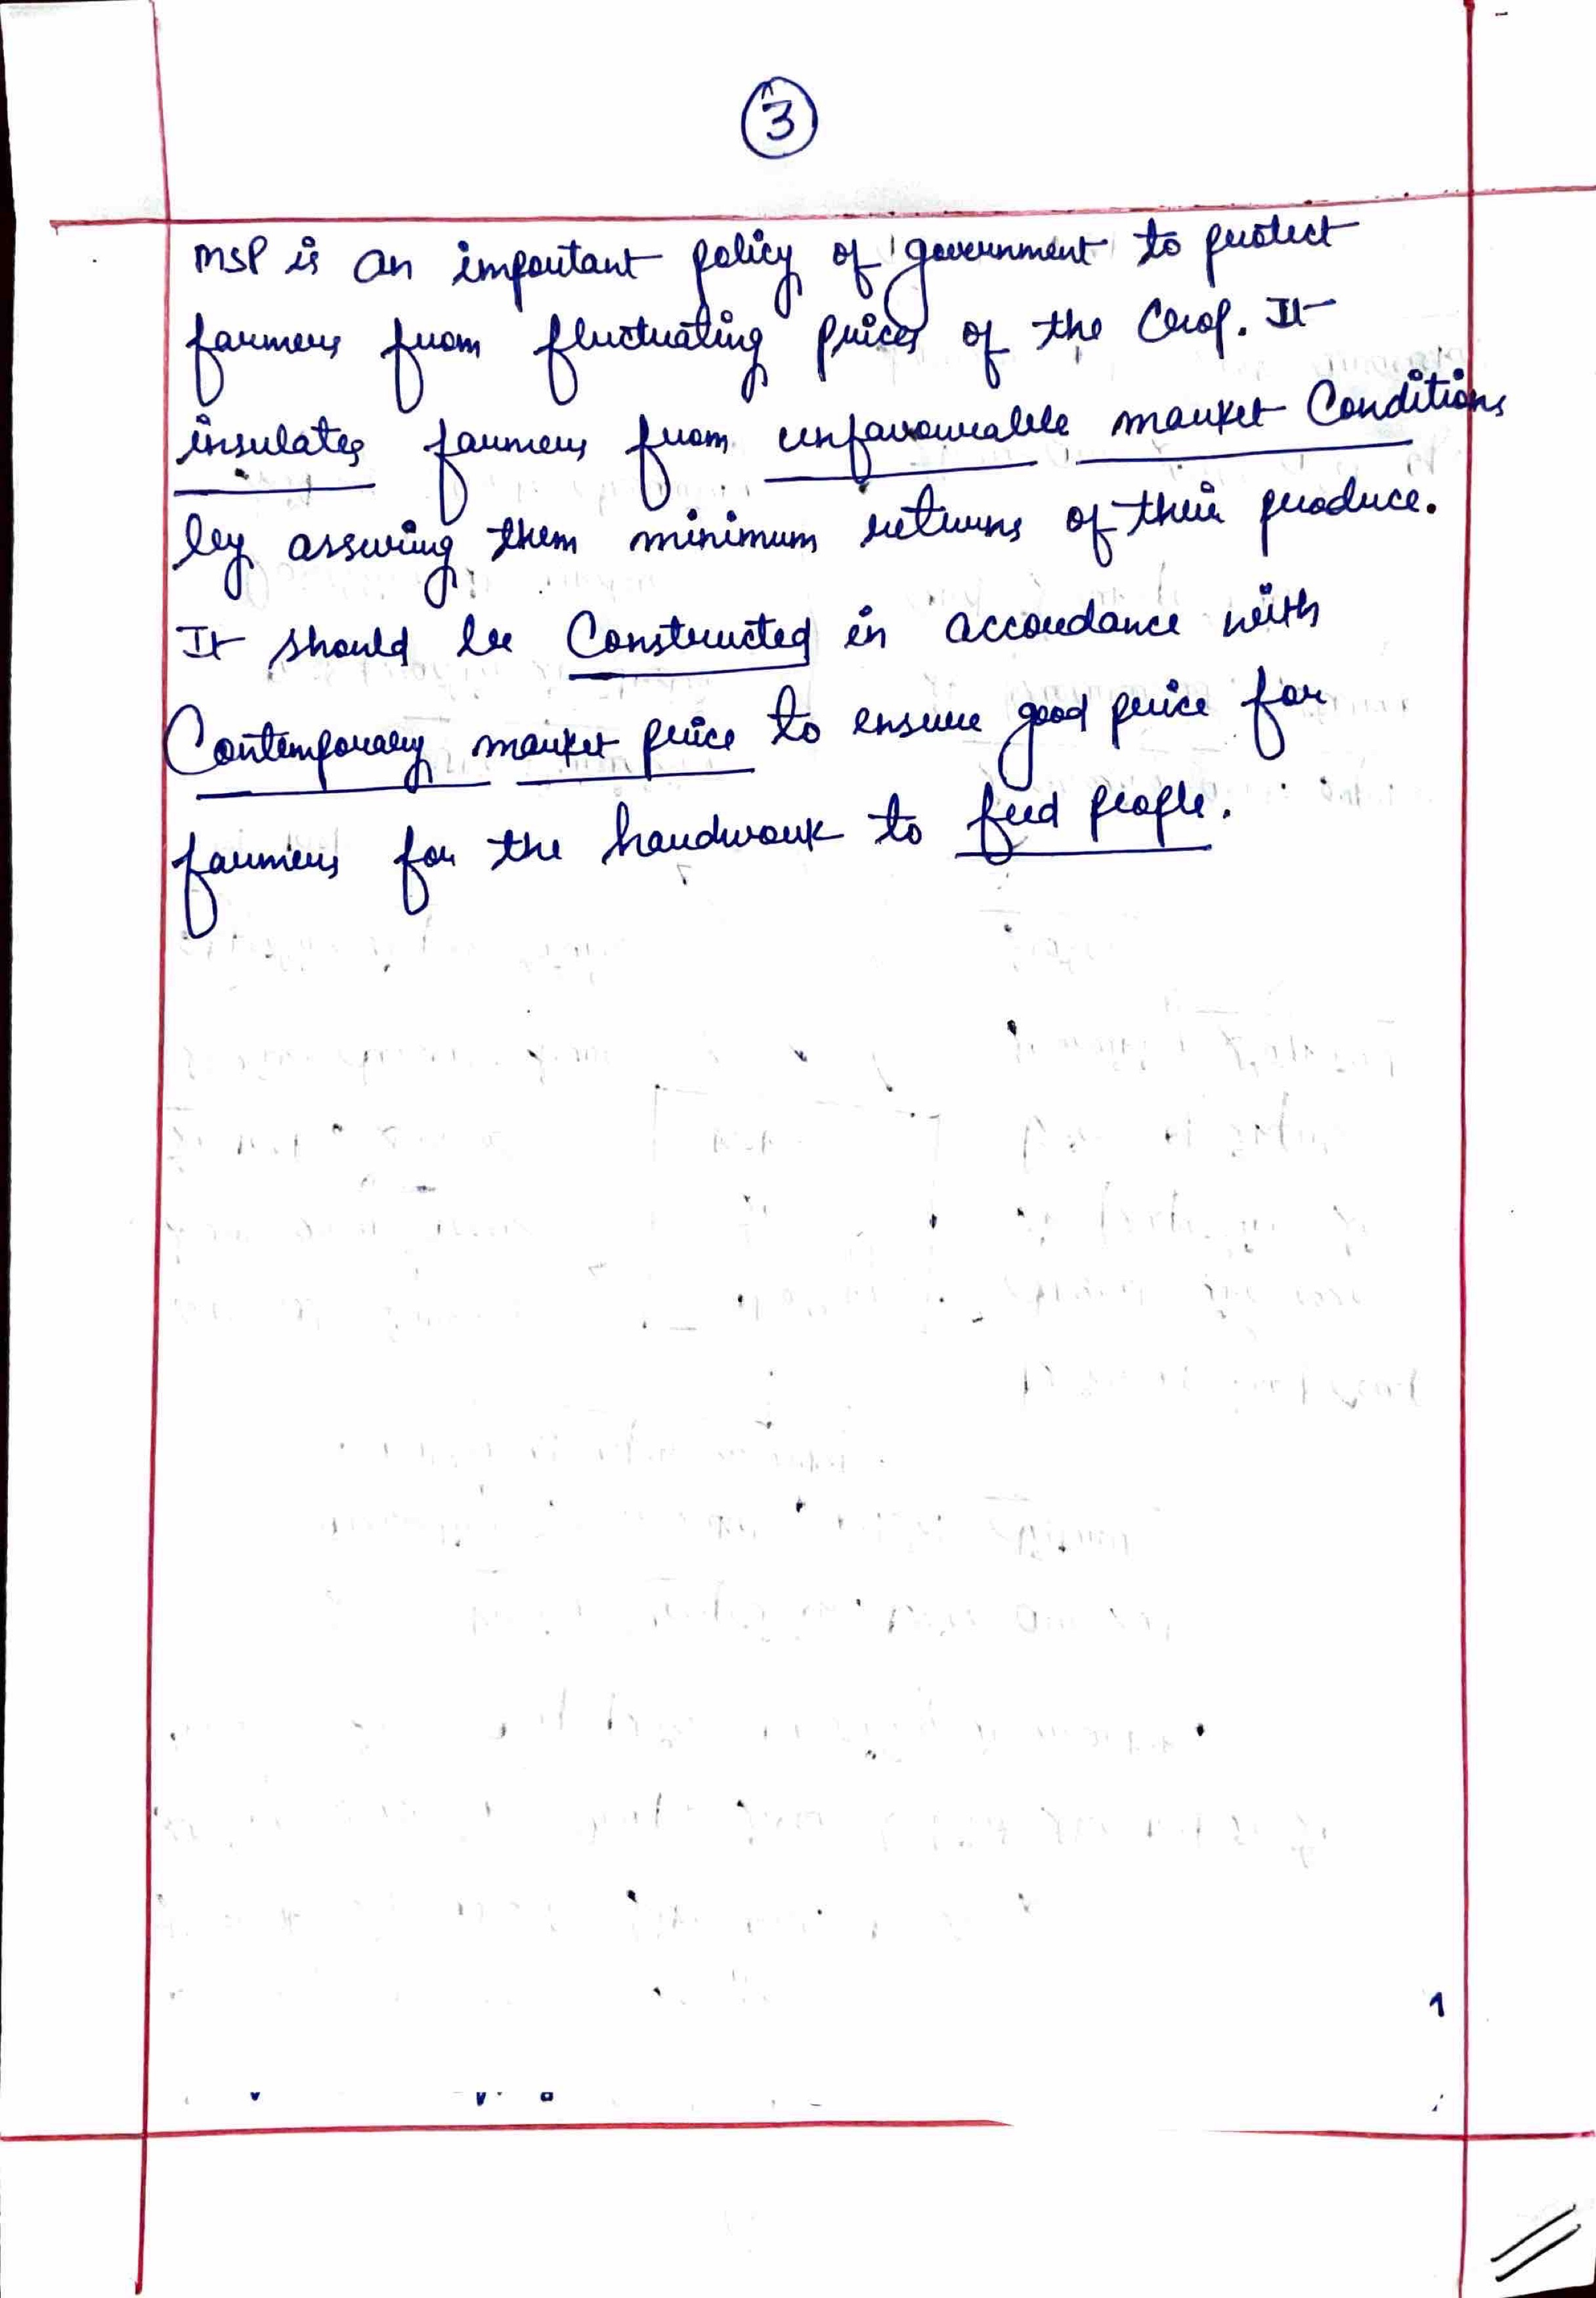 3
MSP is an important policy of government to protect
farmers from fluctuating prices of the crop. It
insulates farmers from unfavourable market conditions
by assuring them minimum returns of their produce.
It should be constructed in accordance with
Contemporary market price to ensure good price for
farmers for the hardwork to feed people.
1